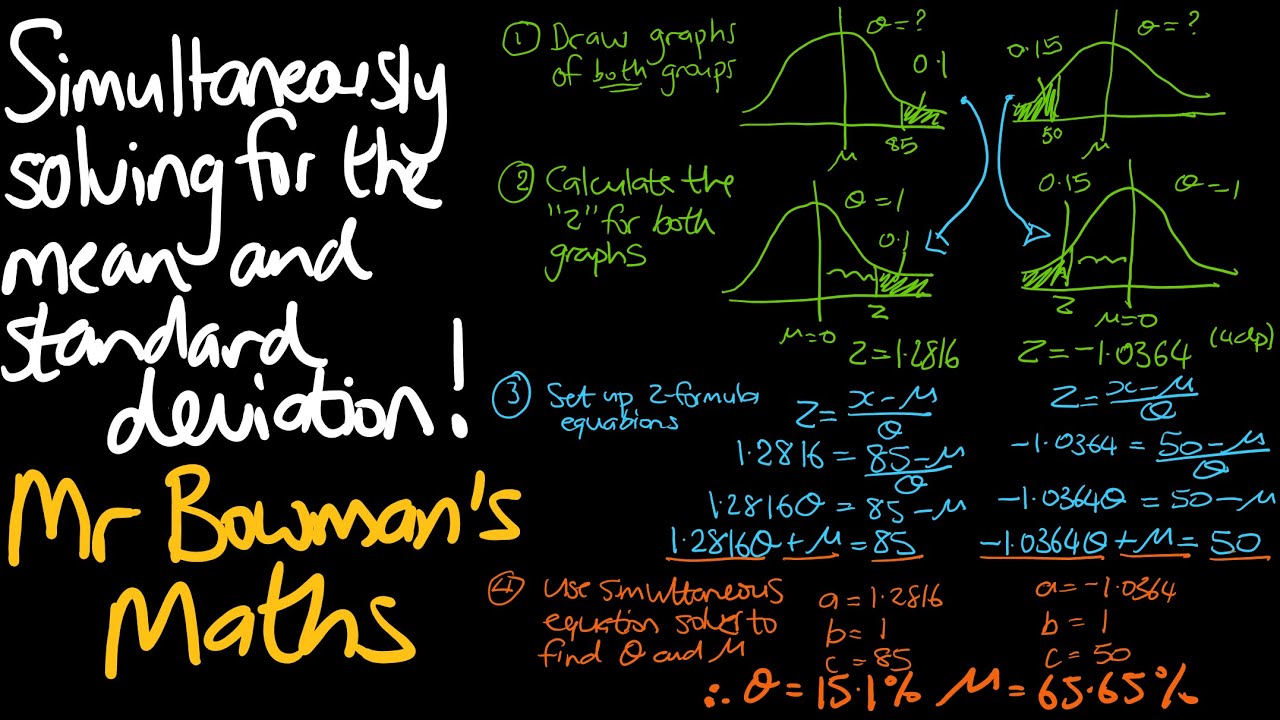 Simultaneously
solving for the
mean and
standard
deviation!
Mr Bowman's
Maths
① Draw graphs
of both groups
θ=?
0.1
85
μ
0.15
θ=?
50
μ
② Calculate the
"Z" for both
graphs
θ=1
0.1
μ=0
Z
Z=1.2816
0.15
θ=1
Z
μ=0
Z=-1.0364 (4dp)
③ Set up Z-formula
equations
Z= x-μ
θ
1.2816 = 85-μ
θ
1.2816θ = 85-μ
1.2816θ + μ = 85
Z= x-μ
θ
-1.0364 = 50-μ
θ
-1.0364θ = 50-μ
-1.0364θ + μ = 50
④ Use simultaneous
equation solver to
find θ and μ
a=1.2816
b=1
c=85
a=-1.0364
b=1
c=50
∴ θ=15.1% μ=65.65%